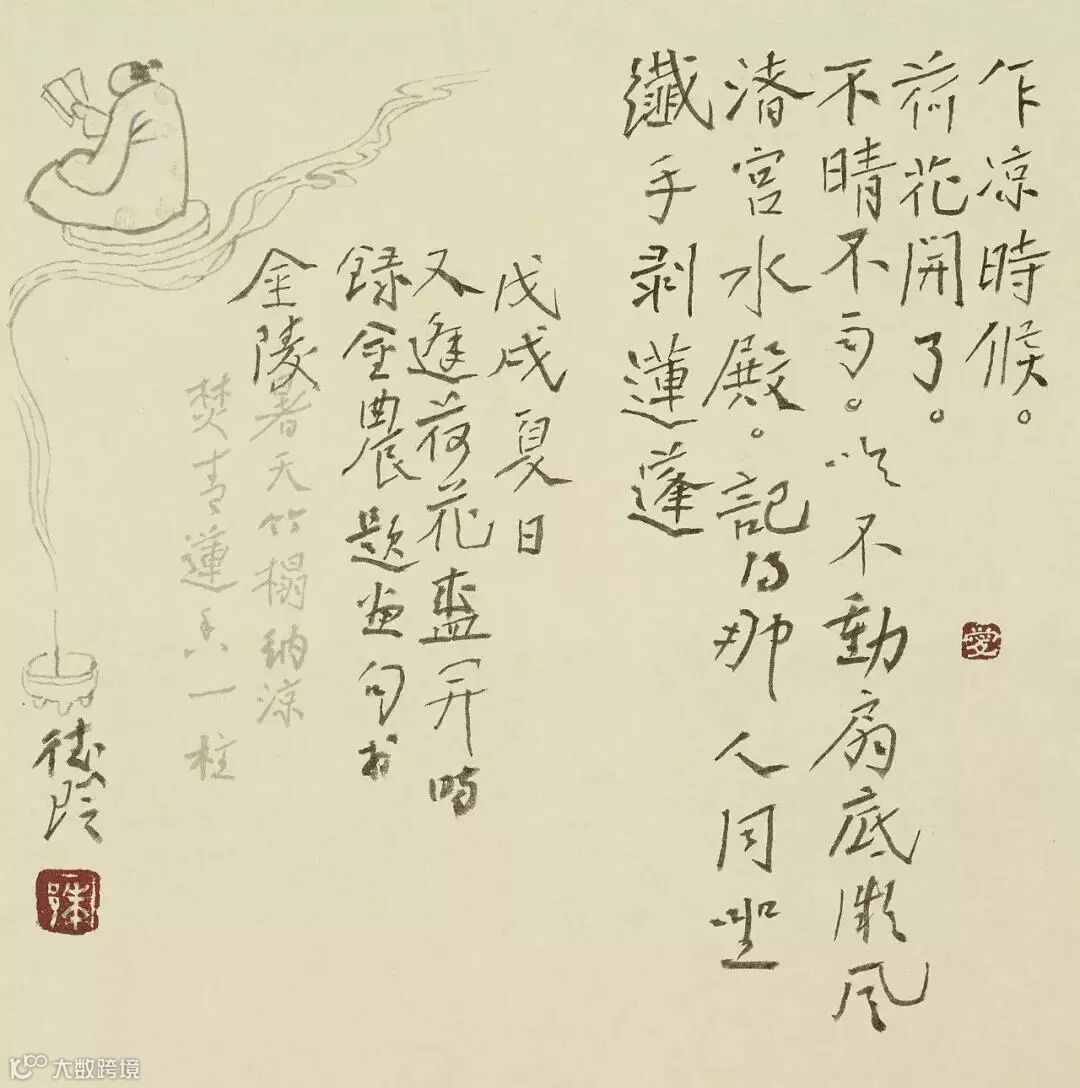 乍凉時候。
荷花開了。
不晴不雨。吹不動扇底微风
渚宮水殿。記得那人同坐
纖手剥蓮蓬
戊戌夏日
又逢荷花盛开時
録金農题画句於
金陵暑天竹榻納凉
焚青蓮香一柱
大数跨境